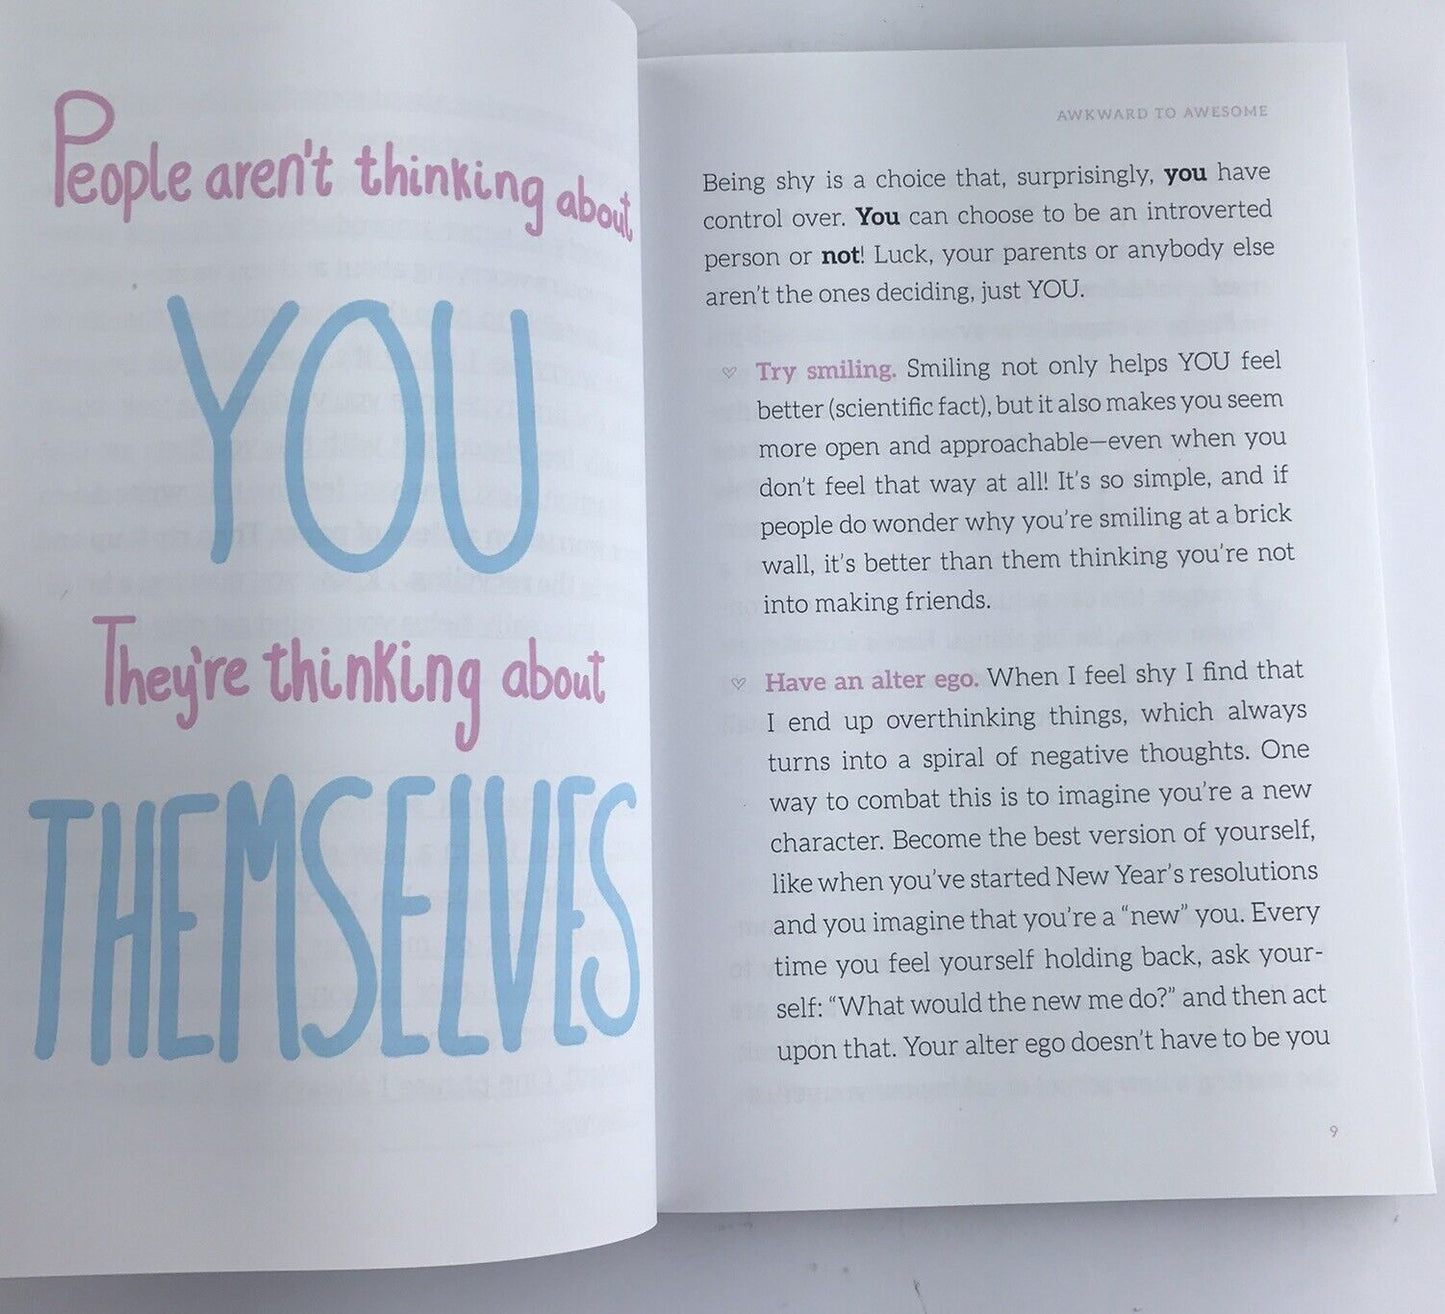 People aren't thinking about
YOU
They're thinking about
THEMSELVES
AWKWARD TO AWESOME
Being shy is a choice that, surprisingly, you have
control over. You can choose to be an introverted
person or not! Luck, your parents or anybody else
aren't the ones deciding, just YOU.
Try smiling. Smiling not only helps YOU feel
better (scientific fact), but it also makes you seem
more open and approachable—even when you
don't feel that way at all! It's so simple, and if
people do wonder why you're smiling at a brick
wall, it's better than them thinking you're not
into making friends.
Have an alter ego. When I feel shy I find that
I end up overthinking things, which always
turns into a spiral of negative thoughts. One
way to combat this is to imagine you're a new
character. Become the best version of yourself,
like when you've started New Year's resolutions
and you imagine that you're a “new” you. Every
time you feel yourself holding back, ask your-
self: “What would the new me do?” and then act
upon that. Your alter ego doesn't have to be you
9